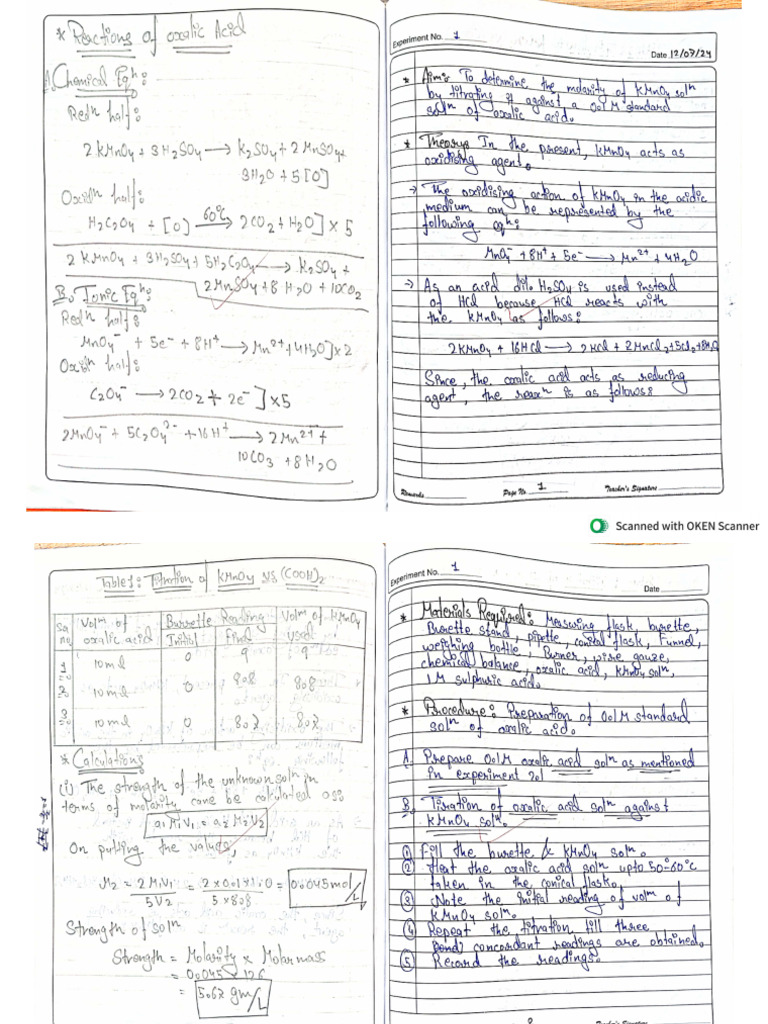 * Reactions of oxalic Acid
A. Chemical Eqⁿ:
Redⁿ half:
2 KMnO₄ + 3H₂SO₄ → K₂SO₄ + 2MnSO₄+
3H₂O + 5[O]
Oxiⁿ half:
H₂C₂O₄ + [O] 60°C → 2CO₂ + H₂O] × 5
2 KMnO₄ + 3H₂SO₄ + 5H₂C₂O₄ → K₂SO₄ +
2MnSO₄ + 8 H₂O + 10CO₂
B. Ionic Eqⁿ:
Redⁿ half:
MnO₄⁻ + 5e⁻ + 8H⁺ → Mn²⁺ + 4H₂O] × 2
Oxiⁿ half:
C₂O₄⁻ → 2CO₂ + 2e⁻] × 5
2MnO₄⁻ + 5C₂O₄²⁻ + 16H⁺ → 2Mn²⁺ +
10CO₃ + 8H₂O
Experiment No. 1
Date 12/07/24
* Aim: To determine the molarity of KMnO₄ solⁿ
by titrating it against a 0.1 M standard
solⁿ of oxalic acid.
* Theory: In the present, KMnO₄ acts as
oxidising agent.
→ The oxidising action of KMnO₄ in the acidic
medium can be represented by the
following eqⁿ:
MnO₄⁻ + 8H⁺ + 5e⁻ → Mn²⁺ + 4H₂O
→ As an acid dil. H₂SO₄ is used instead
of HCl because HCl reacts with
the KMnO₄ as follows:
2KMnO₄ + 16HCl → 2HCl + 2MnCl₂ + 5Cl₂ + 8H₂O
Since, the oxalic acid acts as reducing
agent, the reaxⁿ is as follows:
Remarks
Page No. 1
Teacher's Signature
Scanned with OKEN Scanner
Table 1: Titration of KMnO₄ VS (COOH)₂
Sq. no. Volᵐ of oxalic acid Burette Reading Initial Final Volᵐ of KMnO₄ used
1 10ml 0 9 9
2 10ml 0 8.8 8.8
3 10ml 0 8.7 8.7
* Calculations
(i) The strength of the unknown solⁿ in
terms of molarity cane be calculated as:
a₁M₁V₁ = a₂M₂V₂
On putting the values,
M₂ = 2M₁V₁ / 5V₂ = 2 × 0.1 × 10 / 5 × 8.8 = 0.045 mol/L
Strength of solⁿ
Strength = Molarity × Molar mass
= 0.045 × 126
= 5.67 gm/L
Experiment No. 1
Date
* Materials Required: Measuring flask, burette,
Burette stand, pipette, conical flask, Funnel,
weighing bottle, Burner, wire gauze,
chemical balance, oxalic acid, KMnO₄ solⁿ,
1M sulphuric acid.
* Procedure: Preparation of 0.1M standard
solⁿ of oxalic acid.
A. Prepare 0.1M oxalic acid solⁿ as mentioned
in experiment 2.1
B. Titration of oxalic acid solⁿ against
KMnO₄ solⁿ.
① Fill the burette KMnO₄ solⁿ.
② Heat the oxalic acid solⁿ upto 50-60°C
taken in the conical flask.
③ Note the initial reading of volᵐ of
KMnO₄ solⁿ.
④ Repeat the titration till three
concordant readings are obtained.
⑤ Record the readings.
Teacher's Signature